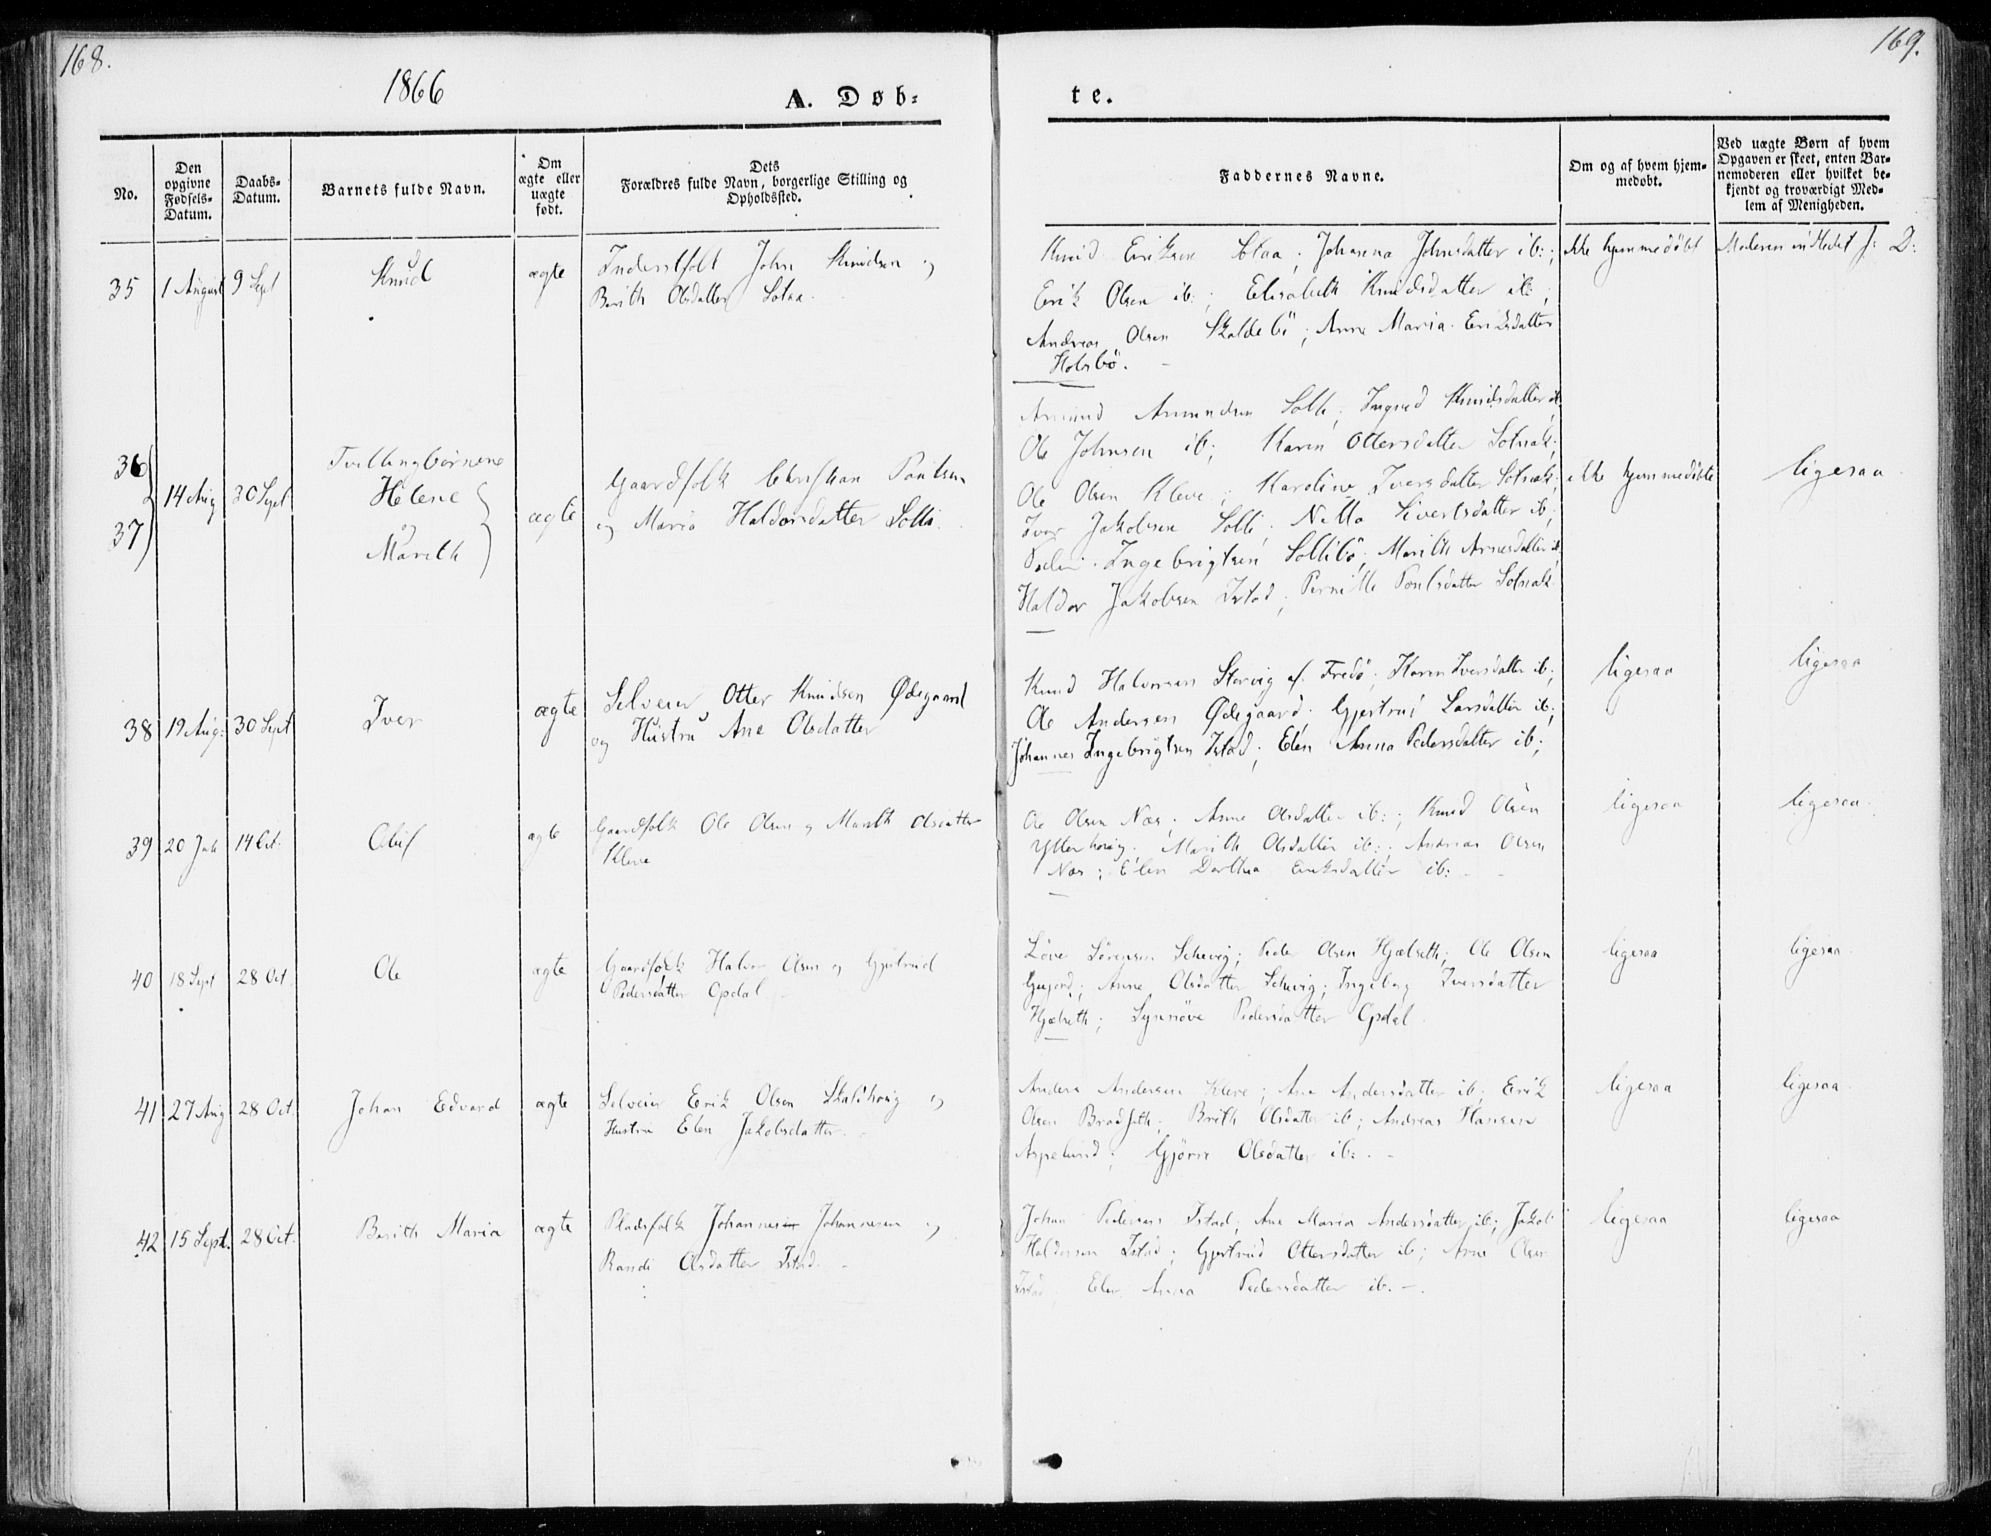 168.
1866
A. Døb-
No.
Den opgivne Fødsels-Datum.
Daabs-Datum.
Barnets fulde Navn.
Om ægte eller uægte født.
Dets Forældres fulde Navn, borgerlige Stilling og Opholdssted.
35 1 August 9 Sept Knud ægte Inderstfolk John Knudsen og
Berith Olsdatter Solaa.
36
37
14 Aug 30 Sept
Tvillingbørnene
Helene
og
Marith
ægte
Gaardfolk Christian Paulsen
og Maria Haldorsdatter Solli.
38 19 Aug: 30 Sept Iver ægte Selveier Otter Knudsen Ødegaard
og Hustru Ane Olsdatter
39 20 Juli 14 Oct: Oluf ægte Gaardfolk Ole Olsen og Marith Olsdatter
Kleve
40 18 Sept 28 Oct Ole ægte Gaardfolk Halvor Olsen og Gjertrud
Pedersdatter Opdal
41 27 Aug 28 Oct. Johan Edvard ægte Selveier Erik Olsen Skalshoug og
Hustru Elen Jakobsdatter.
42 15 Sept. 28 Oct. Berith Maria ægte Pladsfolk Johannes Johannesen og
Randi Olsdatter Istad.
169.
te.
Faddernes Navne.
Om og af hvem hjemmedøbt.
Ved uægte Børn af hvem
Opgaven er skeet, enten Bar-
nemoderen eller hvilket be-
kjendt og troværdigt Med-
lem af Menigheden.
Knud Eriksen Solaa; Johanna Johnsdatter ib:; ikke hjemmedøbt
Erik Olsen ib:; Elisabeth Knudsdatter ib:;
Andreas Olsen Skaldebö; Anne Maria Eriksdatter
Holsbö.
Amund Amundsen Solli; Ingred Knudsdatter ib.
Ole Johnsen ib; Karen Ottersdatter Solsæt;
Ole Olsen Kleve; Karoline Iversdatter Solsæt; ikke hjemmedøbte ligesaa
Iver Jakobsen Solli; Nilla Sivertsdatter ib;
Peder Ingebrigtsen Sollibö; Marith Arnesdatter ib
Haldor Jakobsen Istad; Pernille Poulsdatter Solsæt.
Knud Halvorsen Storvig af Fredö; Karen Iversdatter ib; ligesaa ligesaa
Ole Andersen Ødegaard; Gjertrud Larsdatter ib;
Johannes Ingebrigtsen Istad; Elen Anna Pedersdatter ib;
Ole Olsen Næs; Anne Olsdatter ib:; Knud Olsen ligesaa ligesaa.
Ytterhoug; Marith Olsdatter ib:; Andreas Olsen
Næs; Elen Dorthea Eriksdatter ib:
Löve Sörensen Schevig; Peder Olsen Hjælseth; Ole Olsen ligesaa ligesaa.
Gujord; Anne Olsdatter Schevig; Ingeborg Iversdatter
Hjælseth; Synnöve Pedersdatter Opdal.
Anders Andersen Kleve; Ane Andersdatter ib; Erik ligesaa ligesaa.
Olsen Bradseth; Brith Olsdatter ib; Andreas Hansen
Aspelund; Gjöru Olsdatter ib:
Johan Pedersen Istad; Ane Maria Andersdatter ib; Jakob ligesaa ligesaa
Haldorsen Istad; Gjertrud Ottersdatter ib; Arne Olsen
Istad; Elen Anna Pedersdatter ib.